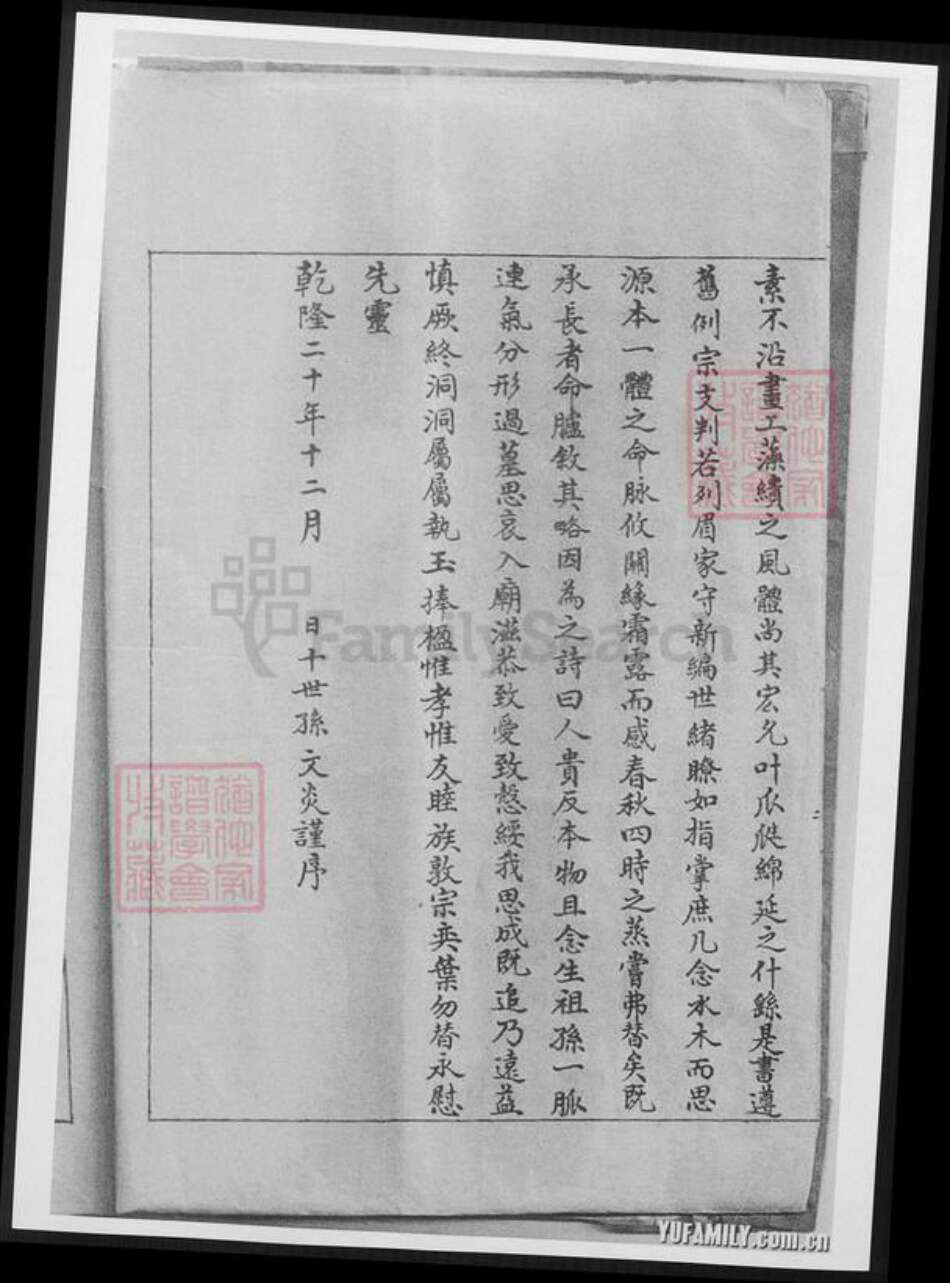 素不沿畫工藻繢之風體尚其宏允叶瓜瓞綿延之什繇是書遵
舊例宗支判若列眉家守新編世緒瞭如指掌庶几念水木而思
源本一體之命脉攸關緣霜露而感春秋四時之蒸嘗弗替矣既
承長者命臚敘其略因為之詩曰人貴反本物且念生祖孫一脈
連氣分形過墓思哀入廟滋恭致愛致慤綏我思成既追乃遠益
慎厥終洞洞屬屬執玉捧楹惟孝惟友睦族敦宗奕葉勿替永慰
先靈
乾隆二十年十二月 日十世孫文炎謹序
FamilySearch
YUFAMILY.com.cn